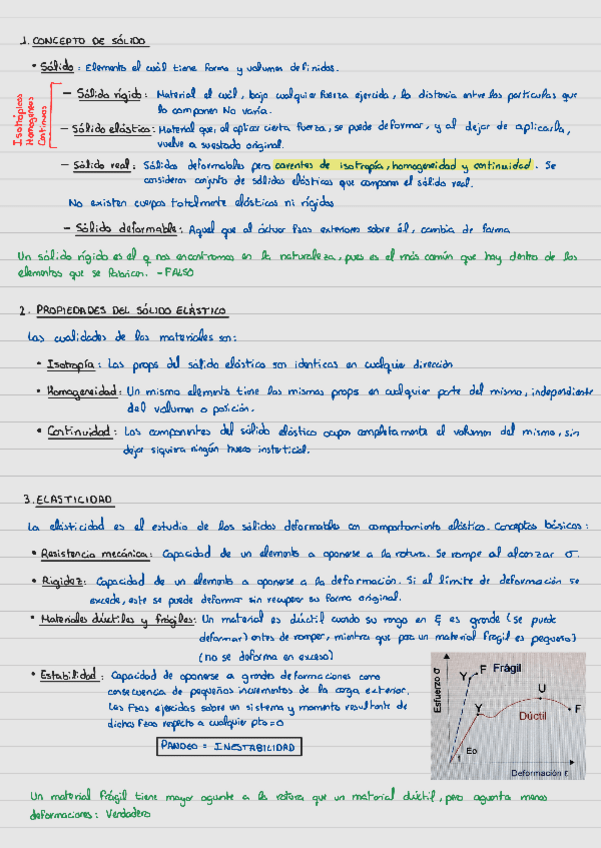 1. CONCEPTO DE SÓLIDO
• Sólido: Elemento el cuál tiene forma y volumen definidos.
Isotrópicos
Homogéneos
Continuos
- Sólido rígido: Material el cuál, bajo cualquier fuerza ejercida, la distancia entre las partículas que
lo componen No varía.
- Sólido elástico: Material que, al aplicar cierta fuerza, se puede deformar, y al dejar de aplicarla,
vuelve a su estado original.
- Sólido real: Sólidos deformables pero carentes de isotropía, homogeneidad y continuidad. Se
consideran conjunto de sólidos elásticos que componen el sólido real.
No existen cuerpos totalmente elásticos ni rígidos
- Sólido deformable: Aquel que al actuar Fzas exteriores sobre él, cambia de forma
Un sólido rígido es el q nos encontramos en la naturaleza, pues es el más común que hay dentro de los
elementos que se fabrican. - FALSO
2. PROPIEDADES DEL SÓLIDO ELÁSTICO
Las cualidades de los materiales son:
• Isotropía: Las props del sólido elástico son identicas en cualquier dirección
• Homogeneidad: Un mismo elemento tiene las mismas props en cualquier parte del mismo, independiente
del volumen o posición.
• Continuidad: Los componentes del sólido elástico ocupan completamente el volumen del mismo, sin
dejar siquiera ningún hueco intersticial.
3. ELASTICIDAD
La elasticidad es el estudio de los sólidos deformables con comportamiento elástico. Conceptos básicos:
• Resistencia mecánica: Capacidad de un elemento a oponerse a la rotura. Se rompe al alcanzar σ.
• Rigidez: Capacidad de un elemento a oponerse a la deformación. Si el límite de deformación se
excede, este se puede deformar sin recuperar su forma original.
• Materiales dúctiles y frágiles: Un material es dúctil cuando su rango en ξ es grande (se puede
deformar) antes de romper, mientras que para un material frágil es pequeño)
(no se deforma en exceso)
• Estabilidad: Capacidad de oponerse a grandes deformaciones como
consecuencia de pequeños incrementos de la carga exterior.
Las Fzas ejercidas sobre un sistema y momento resultante de
dichas Fzas respecto a cualquier pto = 0
PANDEO = INESTABILIDAD
Esfuerzo σ
Y F Frágil
Y U F
Dúctil
Eo
Deformación
Un material frágil tiene mayor aguante a la rotura que un material dúctil, pero aguanta menos
deformaciones: Verdadero